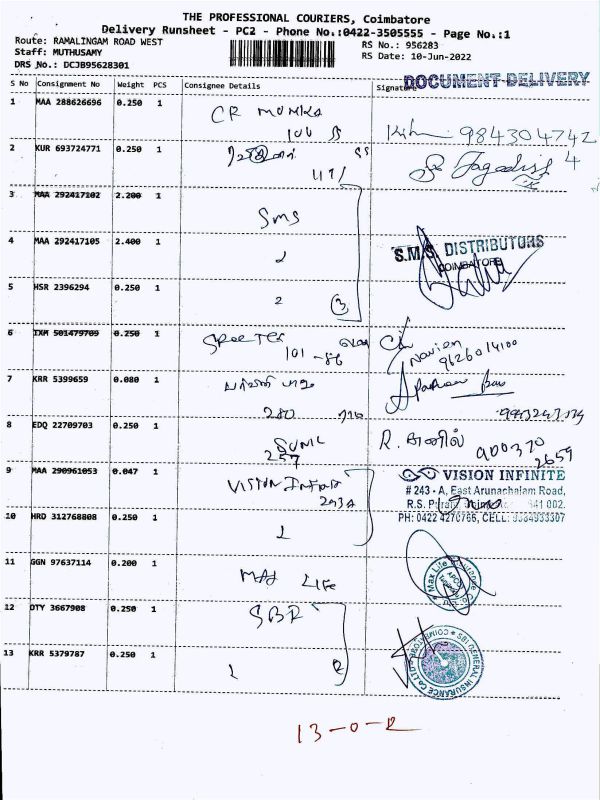 THE PROFESSIONAL COURIERS, Coimbatore
Delivery Runsheet - PC2 - Phone No.:0422-3505555 - Page No.:1
Route: RAMALINGAM ROAD WEST
RS No.: 956283
Staff: MUTHUSAMY
RS Date: 10-Jun-2022
DRS No.: DCJB95628301
DOCUMENT-DELIVERY
S No Consignment No Weight PCS Consignee Details Signature
1 MAA 288626696 0.250 1 CR
2 KUR 693724771 0.250 1
3 MAA 292417102 2.200 1 SMS
4 MAA 292417105 2.400 1 S.M.S. DISTRIBUTORS
COIMBATORE
5 HSR 2396294 0.250 1 2 3
6 IXM 501479709 0.250 1 101 - 86 Navien
9626014100
7 KRR 5399659 0.080 1
8 EDQ 22709703 0.250 1 SUNIL R.
257 900370
2659
9 MAA 290961053 0.047 1 VISION
243A
VISION INFINITE
# 243 - A, East Arunachalam Road,
R.S. 641 002.
PH: 0422 4270766, CELL:
10 HRD 312768808 0.250 1
11 GGN 97637114 0.200 1 MAX LIFE
Max Life Insurance Co.
12 OTY 3667908 0.250 1 SBI
13 KRR 5379787 0.250 1
SBI GENERAL INSURANCE CO LTD COIMBATORE
13-0-R